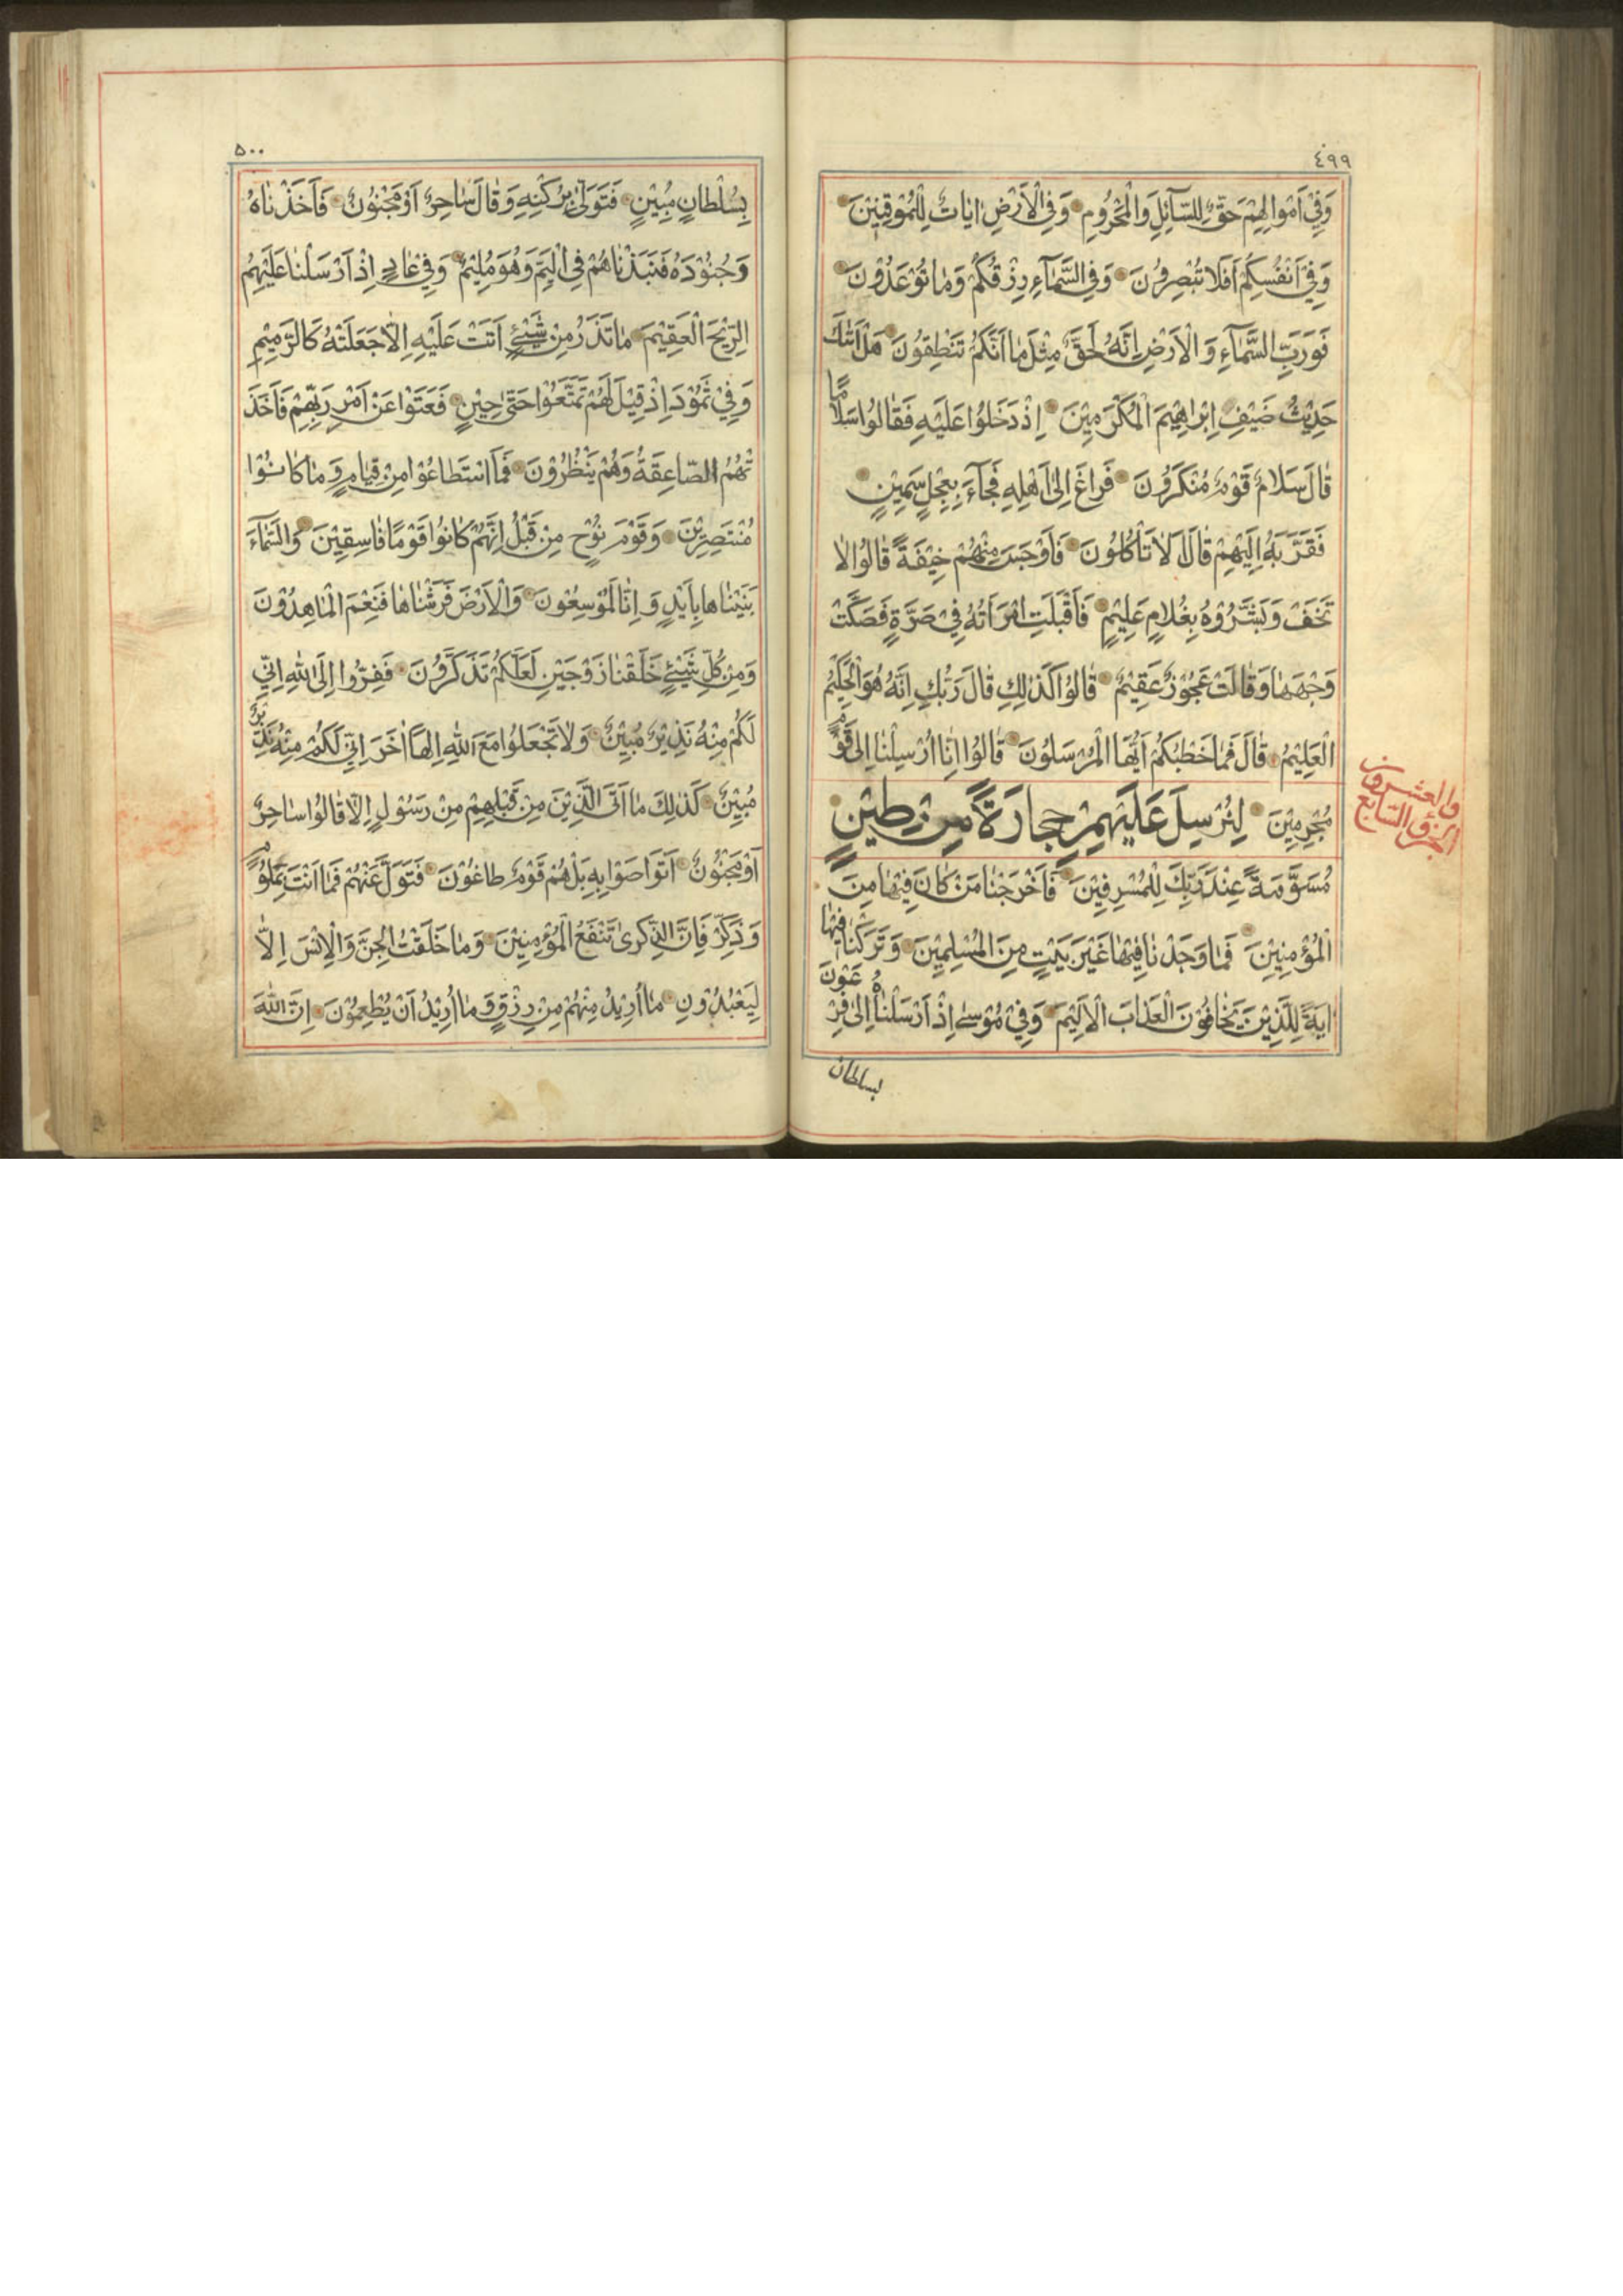 ٤٩٩
وَفِيْ اَمْوالِهِمْ حَقٌّ لِلسَّآئِلِ وَالْمَحْرُومِ وَفِي الْاَرْضِ اٰيَاتٌ لِلْمُوْقِنِيْنَ
وَفِيْ اَنْفُسِكُمْ اَفَلَا تُبْصِرُونَ وَفِي السَّمَآءِ رِزْقُكُمْ وَمٰا تُوْعَدُوْنَ
فَوَرَبِّ السَّمَآءِ وَالْاَرْضِ اِنَّهُ لَحَقٌّ مِثْلَ مٰا اَنَّكُمْ تَنْطِقُونَ هَلْ اَتٰكَ
حَدِيْثُ ضَيْفِ اِبْرٰاهِيْمَ الْمُكْرَمِيْنَ اِذْ دَخَلُوا عَلَيْهِ فَقٰالُوا سَلَامًا
قٰالَ سَلَامٌ قَوْمٌ مُنْكَرُونَ فَرٰاغَ اِلىٰ اَهْلِهِ فَجٰآءَ بِعِجْلٍ سَمِيْنٍ
فَقَرَّبَهُ اِلَيْهِمْ قٰالَ لَاٰ تَأْكُلُونَ فَاَوْجَسَ مِنْهُمْ خِيْفَةً قٰالُوا لَاٰ
تَخَفْ وَبَشَّرُوْهُ بِغُلَامٍ عَلِيْمٍ فَاَقْبَلَتِ امْرَاَتُهُ فِيْ صَرَّةٍ فَصَكَّتْ
وَجْهَهٰا وَقٰالَتْ عَجُوْزٌ عَقِيْمٌ قٰالُوا كَذٰلِكِ قٰالَ رَبُّكِ اِنَّهُ هُوَ الْحَكِيْمُ
الْعَلِيْمُ قٰالَ فَمٰا خَطْبُكُمْ اَيُّهَا الْمُرْسَلُونَ قٰالُوا اِنّٰا اُرْسِلْنٰا اِلىٰ قَوْمٍ
مُجْرِمِيْنَ لِنُرْسِلَ عَلَيْهِمْ حِجٰارَةً مِنْ طِيْنٍ
مُسَوَّمَةً عِنْدَ رَبِّكَ لِلْمُسْرِفِيْنَ فَاَخْرَجْنٰا مَنْ كٰانَ فِيْهٰا مِنَ
الْمُؤْمِنِيْنَ فَمٰا وَجَدْنٰا فِيْهٰا غَيْرَ بَيْتٍ مِنَ الْمُسْلِمِيْنَ وَتَرَكْنٰا فِيْهٰا
اٰيَةً لِلَّذِيْنَ يَخٰافُوْنَ الْعَذٰابَ الْاَلِيْمَ وَفِيْ مُوْسىٰ اِذْ اَرْسَلْنٰاهُ اِلىٰ فِرْعَوْنَ
بسلطان
الجزؤ السّابع
والعشرون
۵۰۰
بِسُلْطٰانٍ مُبِيْنٍ فَتَوَلّىٰ بِرُكْنِهِ وَقٰالَ سٰاحِرٌ اَوْ مَجْنُوْنٌ فَاَخَذْنٰاهُ
وَجُنُوْدَهُ فَنَبَذْنٰاهُمْ فِي الْيَمِّ وَهُوَ مُلِيْمٌ وَفِيْ عٰادٍ اِذْ اَرْسَلْنٰا عَلَيْهِمُ
الرِّيْحَ الْعَقِيْمَ مٰا تَذَرُ مِنْ شَيْئٍ اَتَتْ عَلَيْهِ اِلَّا جَعَلَتْهُ كَالرَّمِيْمِ
وَفِيْ ثَمُوْدَ اِذْ قِيْلَ لَهُمْ تَمَتَّعُوْا حَتّىٰ حِيْنٍ فَعَتَوْا عَنْ اَمْرِ رَبِّهِمْ فَاَخَذَ
تْهُمُ الصّٰاعِقَةُ وَهُمْ يَنْظُرُوْنَ فَمَا اسْتَطٰاعُوْا مِنْ قِيٰامٍ وَمٰا كٰانُوْا
مُنْتَصِرِيْنَ وَقَوْمَ نُوْحٍ مِنْ قَبْلُ اِنَّهُمْ كٰانُوا قَوْمًا فٰاسِقِيْنَ وَالسَّمٰآءَ
بَنَيْنٰاهٰا بِاَيْدٍ وَاِنّٰا لَمُوْسِعُوْنَ وَالْاَرْضَ فَرَشْنٰاهٰا فَنِعْمَ الْمٰاهِدُوْنَ
وَمِنْ كُلِّ شَيْئٍ خَلَقْنٰا زَوْجَيْنِ لَعَلَّكُمْ تَذَكَّرُوْنَ فَفِرُّوا اِلَى اللّٰهِ اِنِّيْ
لَكُمْ مِنْهُ نَذِيْرٌ مُبِيْنٌ وَلَا تَجْعَلُوا مَعَ اللّٰهِ اِلٰهًا اٰخَرَ اِنِّيْ لَكُمْ مِنْهُ نَذِيْرٌ
مُبِيْنٌ كَذٰلِكَ مٰا اَتَى الَّذِيْنَ مِنْ قَبْلِهِمْ مِنْ رَسُوْلٍ اِلَّا قٰالُوْا سٰاحِرٌ
اَوْ مَجْنُوْنٌ اَتَوٰاصَوْا بِهِ بَلْ هُمْ قَوْمٌ طٰاغُوْنَ فَتَوَلَّ عَنْهُمْ فَمٰا اَنْتَ بِمَلُوْمٍ
وَذَكِّرْ فَاِنَّ الذِّكْرىٰ تَنْفَعُ الْمُؤْمِنِيْنَ وَمٰا خَلَقْتُ الْجِنَّ وَالْاِنْسَ اِلَّا
لِيَعْبُدُوْنِ مٰا اُرِيْدُ مِنْهُمْ مِنْ رِزْقٍ وَمٰا اُرِيْدُ اَنْ يُطْعِمُوْنَ اِنَّ اللّٰهَ